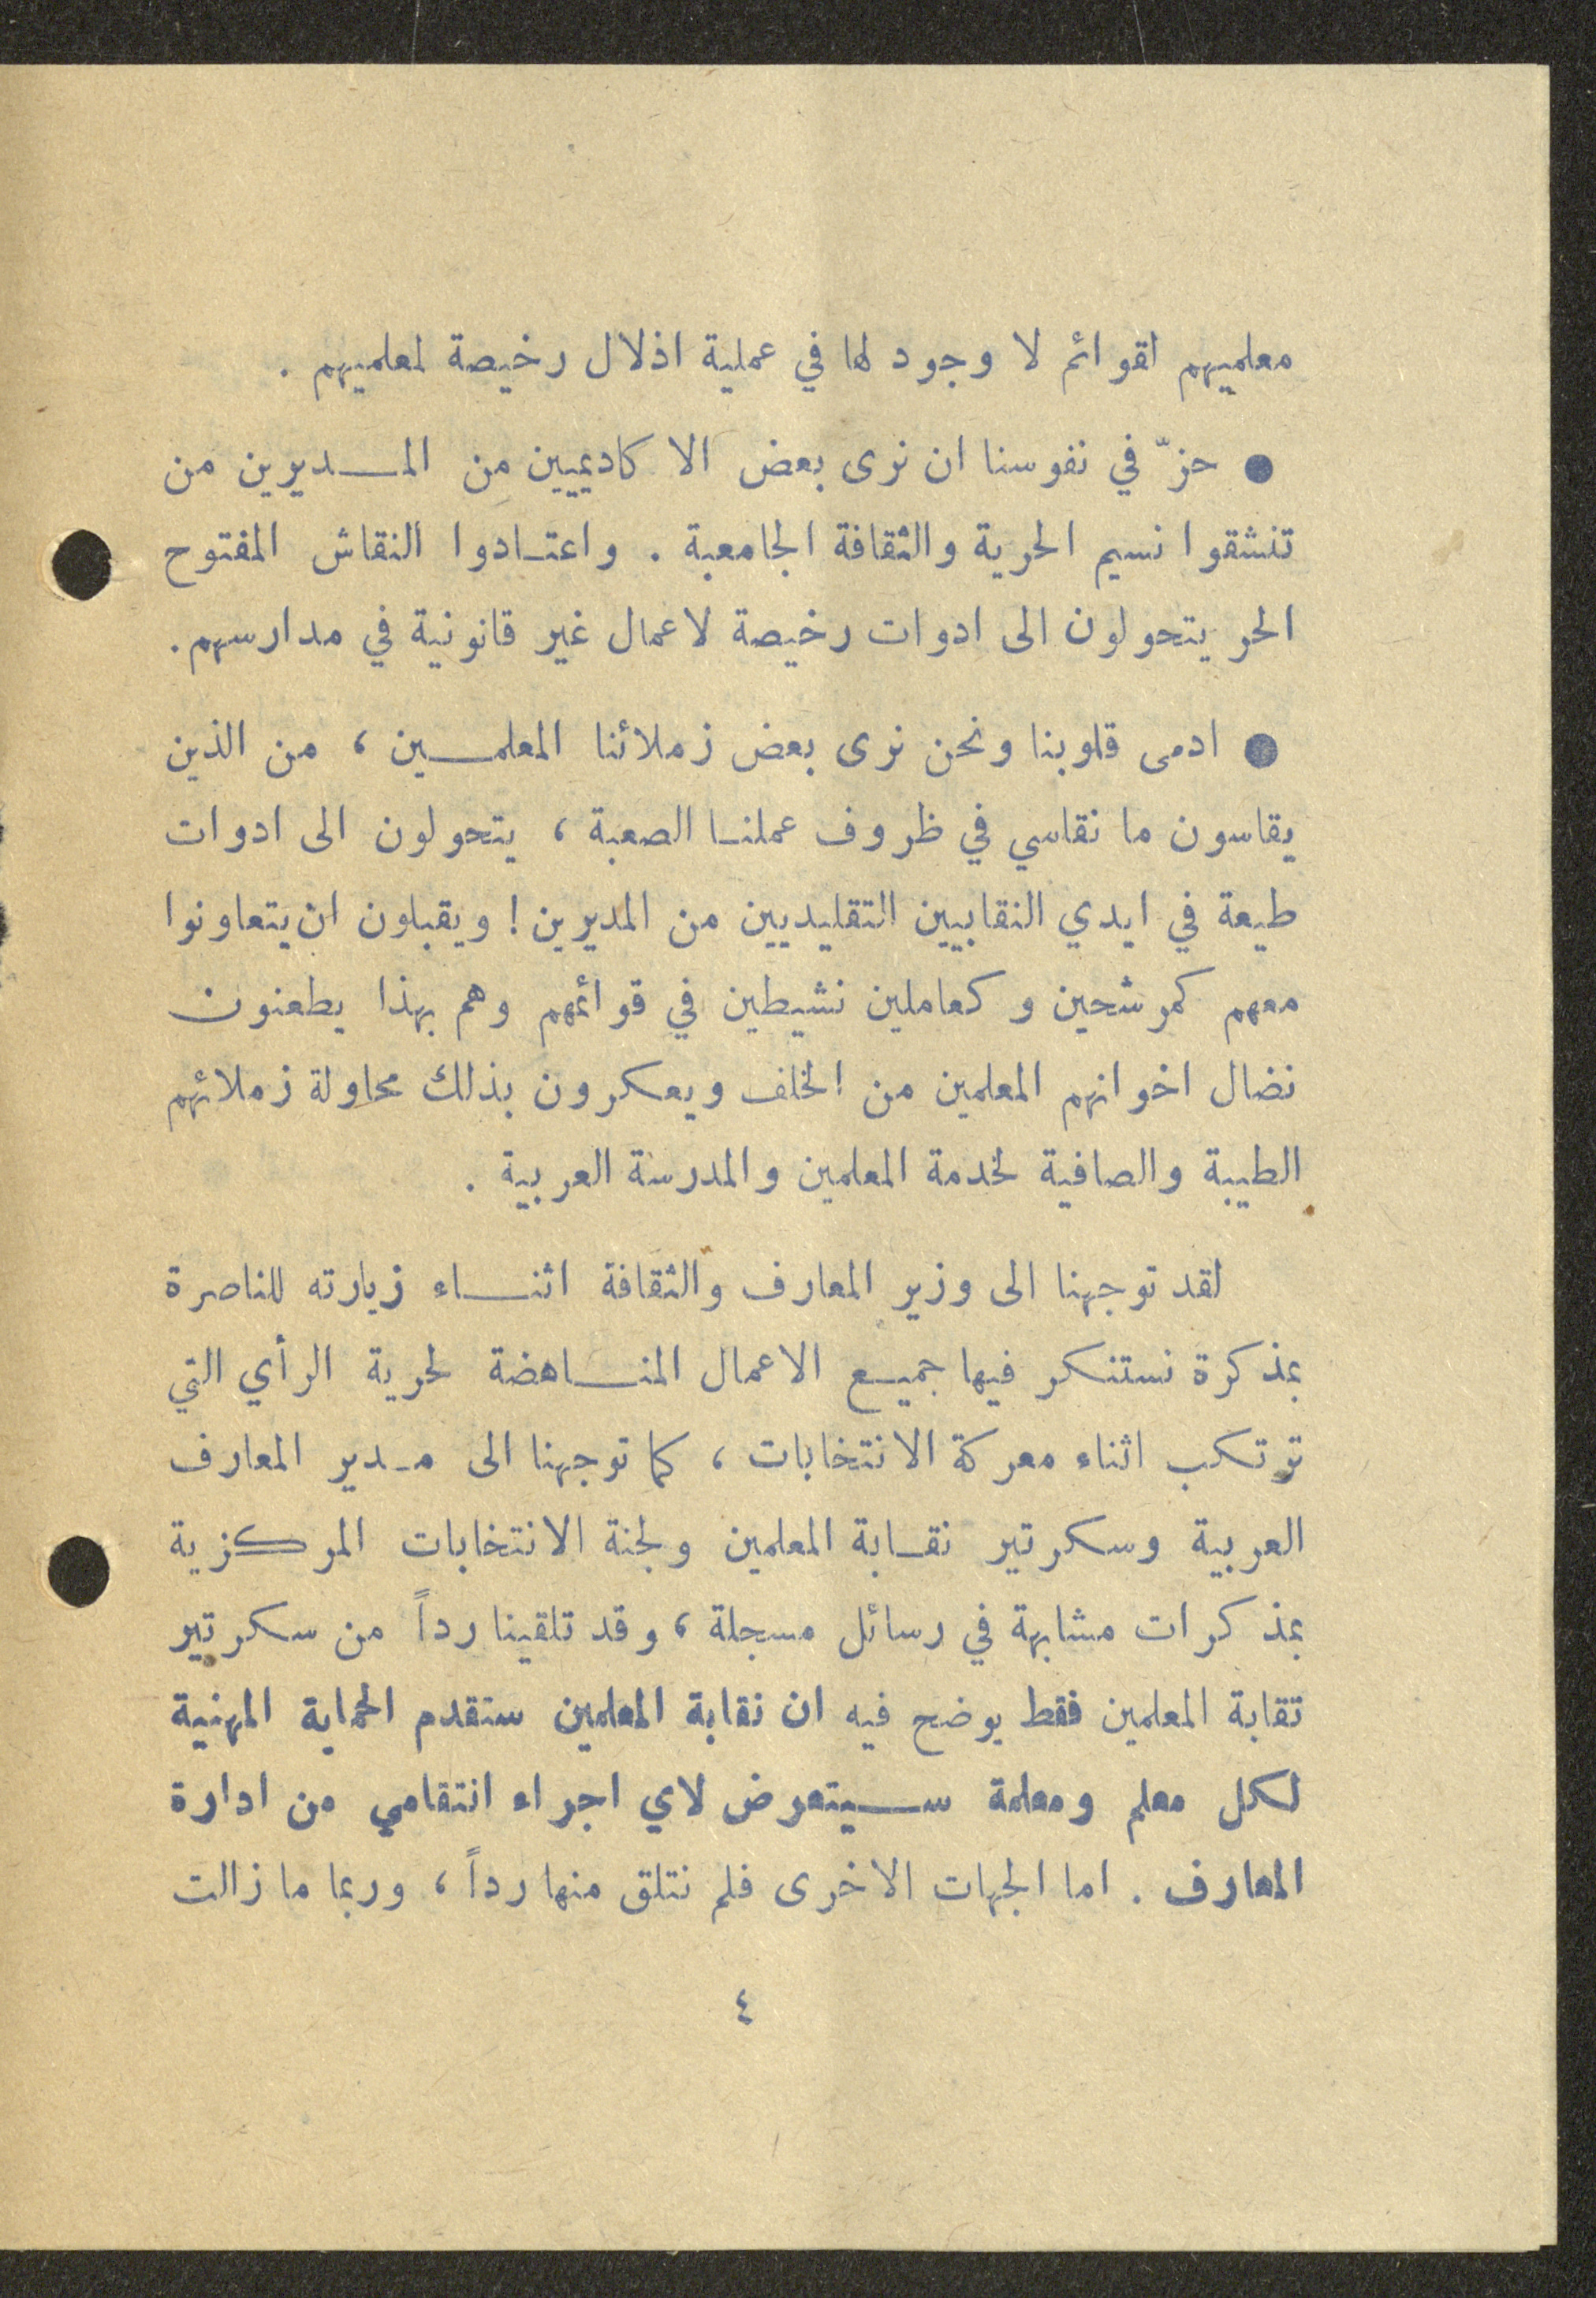 معلميهم لقوائم لا وجود لها في عملية اذلال رخيصة لمعلميهم .
● حزّ في نفوسنا ان نرى بعض الاكاديميين من المديرين من
تنشقوا نسيم الحرية والثقافة الجامعية . واعتادوا النقاش المفتوح
الحر يتحولون الى ادوات رخيصة لاعمال غير قانونية في مدارسهم .
● ادمى قلوبنا ونحن نرى بعض زملائنا المعلمين ، من الذين
يقاسون ما نقاسي في ظروف عملنا الصعبة ، يتحولون الى ادوات
طيعة في ايدي النقابيين التقليديين من المديرين ! ويقبلون ان يتعاونوا
معهم كمرشحين وكعاملين نشيطين في قوائمهم وهم بهذا يطعنون
نضال اخوانهم المعلمين من الخلف ويعكرون بذلك محاولة زملائهم
الطيبة والصافية لخدمة المعلمين والمدرسة العربية .
لقد توجهنا الى وزير المعارف والثقافة اثناء زيارته للناصرة
بمذكرة نستنكر فيها جميع الاعمال المناهضة لحرية الرأي التي
ترتكب اثناء معركة الانتخابات ، كما توجهنا الى مدير المعارف
العربية وسكرتير نقابة المعلمين ولجنة الانتخابات المركزية
بمذكرات مشابهة في رسائل مسجلة ، وقد تلقينا رداً من سكرتير
تقابة المعلمين فقط يوضح فيه ان نقابة المعلمين ستقدم الحماية المهنية
لكل معلم ومعلمة سيتعرض لاي اجراء انتقامي من ادارة
المعارف . اما الجهات الاخرى فلم نتلق منها رداً ، وربما ما زالت
٤